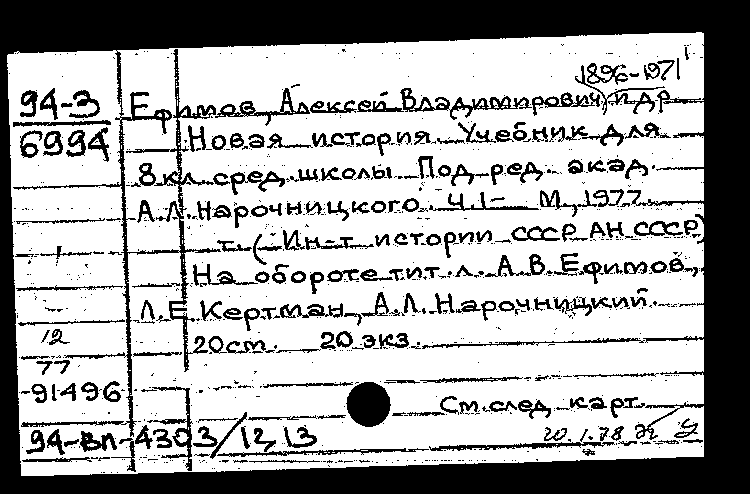 1896-1971
94-3 Ефимов, Алексей Владимирович, и др
6994 Новая история. Учебник для
8 кл. сред. школы. Под ред. акад.
А.Л. Нарочницкого. Ч.I- М., 1977.
т. (Ин-т истории СССР АН СССР)
На обороте тит. л.: А.В. Ефимов,
Л.Е. Кертман, А.Л. Нарочницкий.
12 20 см. 20 экз.
77
91496
См. след. карт.
94-вп-4303/12,13 20.1.78